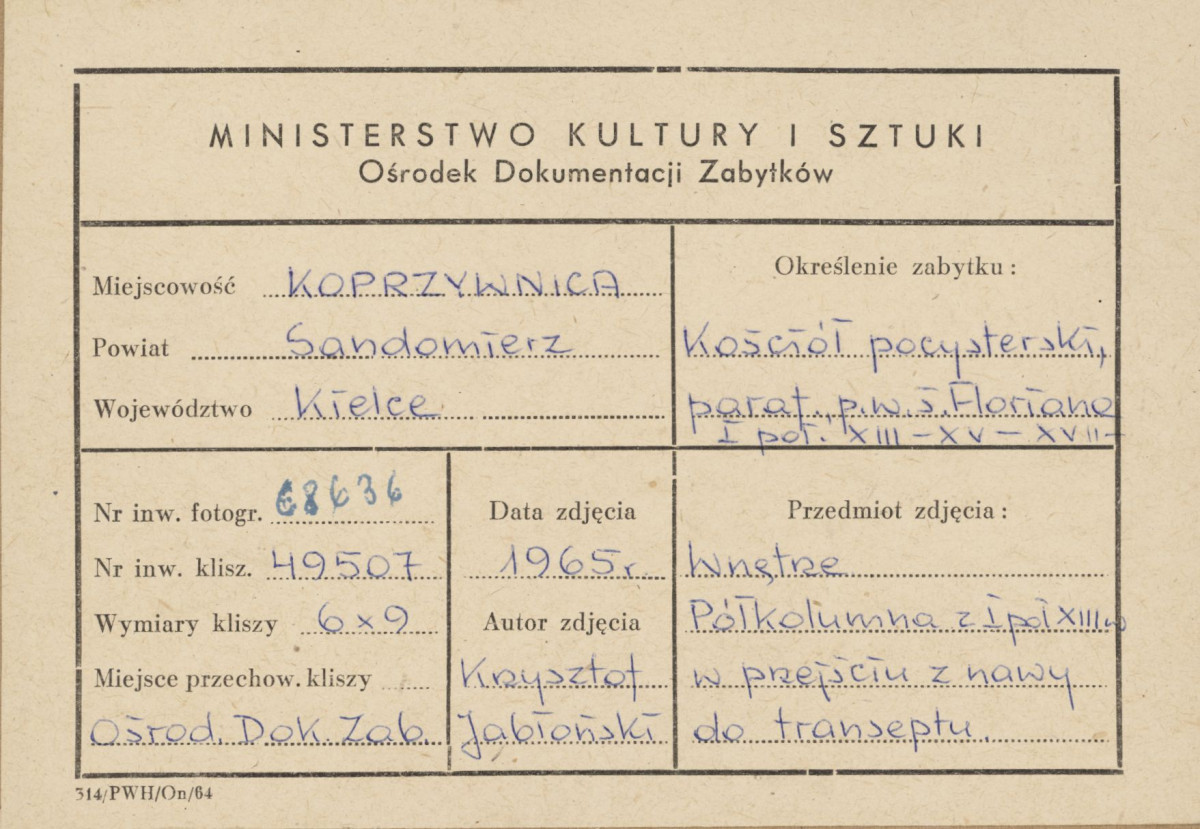 MINISTERSTWO KULTURY I SZTUKI
Ośrodek Dokumentacji Zabytków
Miejscowość KOPRZYWNICA
Powiat Sandomierz
Województwo Kielce
Określenie zabytku:
Kościół pocysterski,
paraf. p.w. ś. Floriana
I poł. XIII – XV – XVII –
Nr inw. fotogr. 68636
Nr inw. klisz. 49507
Wymiary kliszy 6x9
Miejsce przechow. kliszy
Ośrod. Dok. Zab.
Data zdjęcia
1965r.
Autor zdjęcia
Krzysztof
Jabłoński
Przedmiot zdjęcia:
Wnętrze
Półkolumna z I poł XIII w
w przejściu z nawy
do transeptu.
314/PWH/On/64